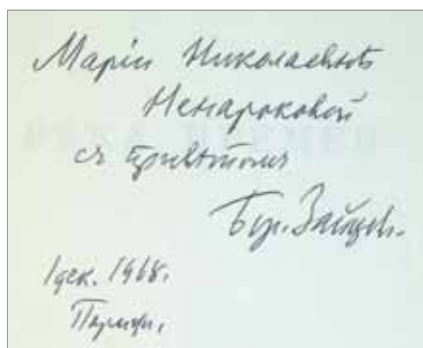 Маріи Николаевнѣ
Ненароковой
съ привѣтомъ
Бор. Зайцев.
1 дек. 1968.
Париж.